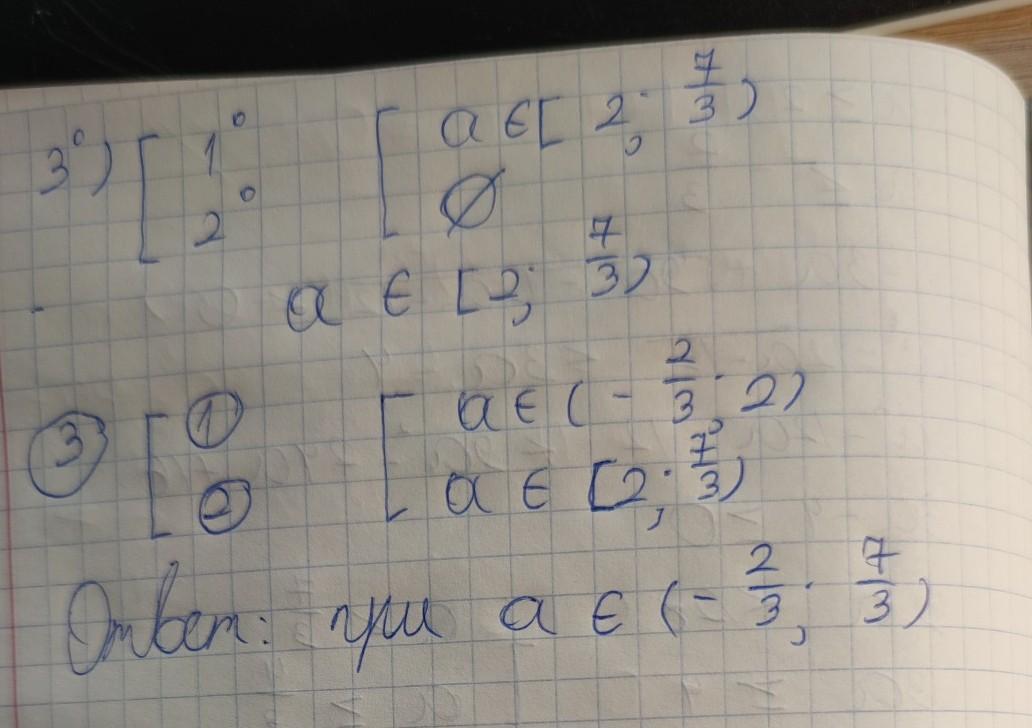 3°) [ 1° [ a ∈ [2; 7/3)
2° ∅
a ∈ [2; 7/3)
③ [ ① [ a ∈ (-2/3; 2)
② a ∈ [2; 7/3)
Ответ: при a ∈ (-2/3; 7/3)